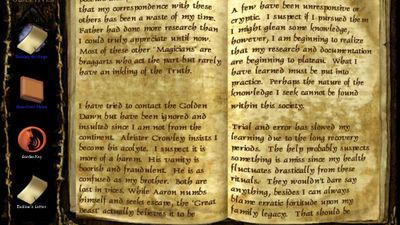 that my correspondence with these
others has been a waste of my time.
Father had done more research than
I could truly appreciate until now.
Most of these other "Magicians" are
braggarts who act the part but rarely
have an inkling of the Truth.
I have tried to contact the Golden
Dawn but have been ignored and
insulted since I am not from the
continent. Aleister Crowley insists I
become his acolyte. I suspect it is
more of a harem. His vanity is
boorish and fraudulent. He is as
confused as my brother. Both are
lost in vices. While Aaron numbs
himself and seeks escape, the "Great
Beast" actually believes it to be
A few have been unresponsive or
cryptic. I suspect if I pursued them
I might glean some knowledge,
however, I am beginning to realize
that my research and documentation
are beginning to plateau. What I
have learned must be put into
practice. Perhaps the nature of the
knowledge I seek cannot be found
within this society.
Trial and error has slowed my
learning due to the long recovery
periods. The help probably suspects
something is amiss since my health
fluctuates drastically from these
rituals. They wouldn't dare say
anything, besides I can always
blame erratic fortitude upon my
family legacy. That should be